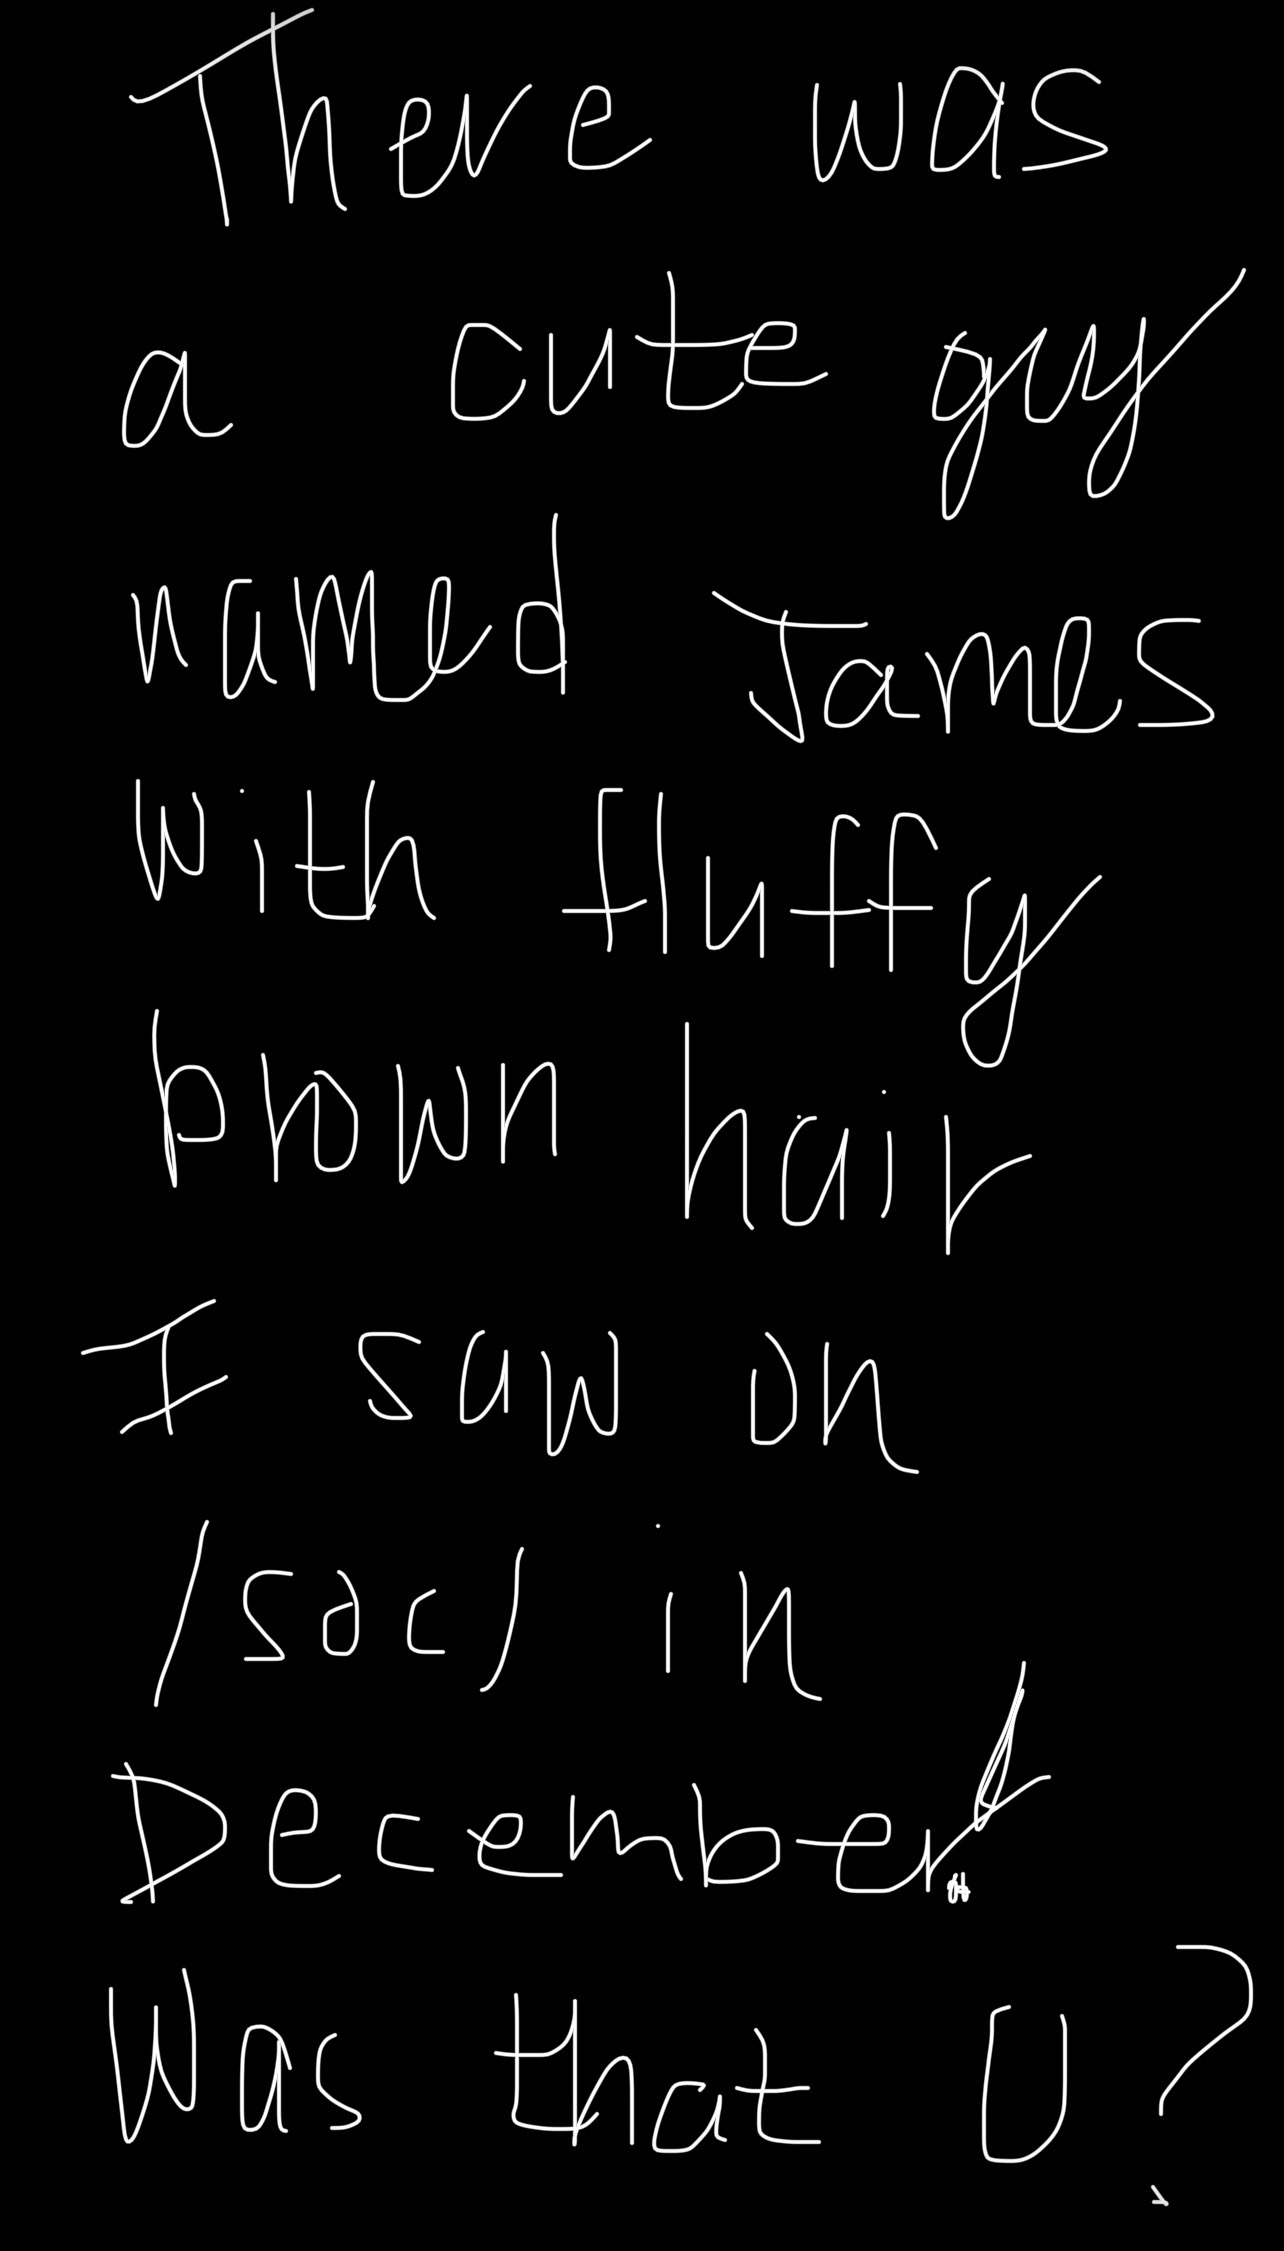 There was
a cute guy
named James
with fluffy
brown hair
I saw on
/soc/ in
December.
Was that U?